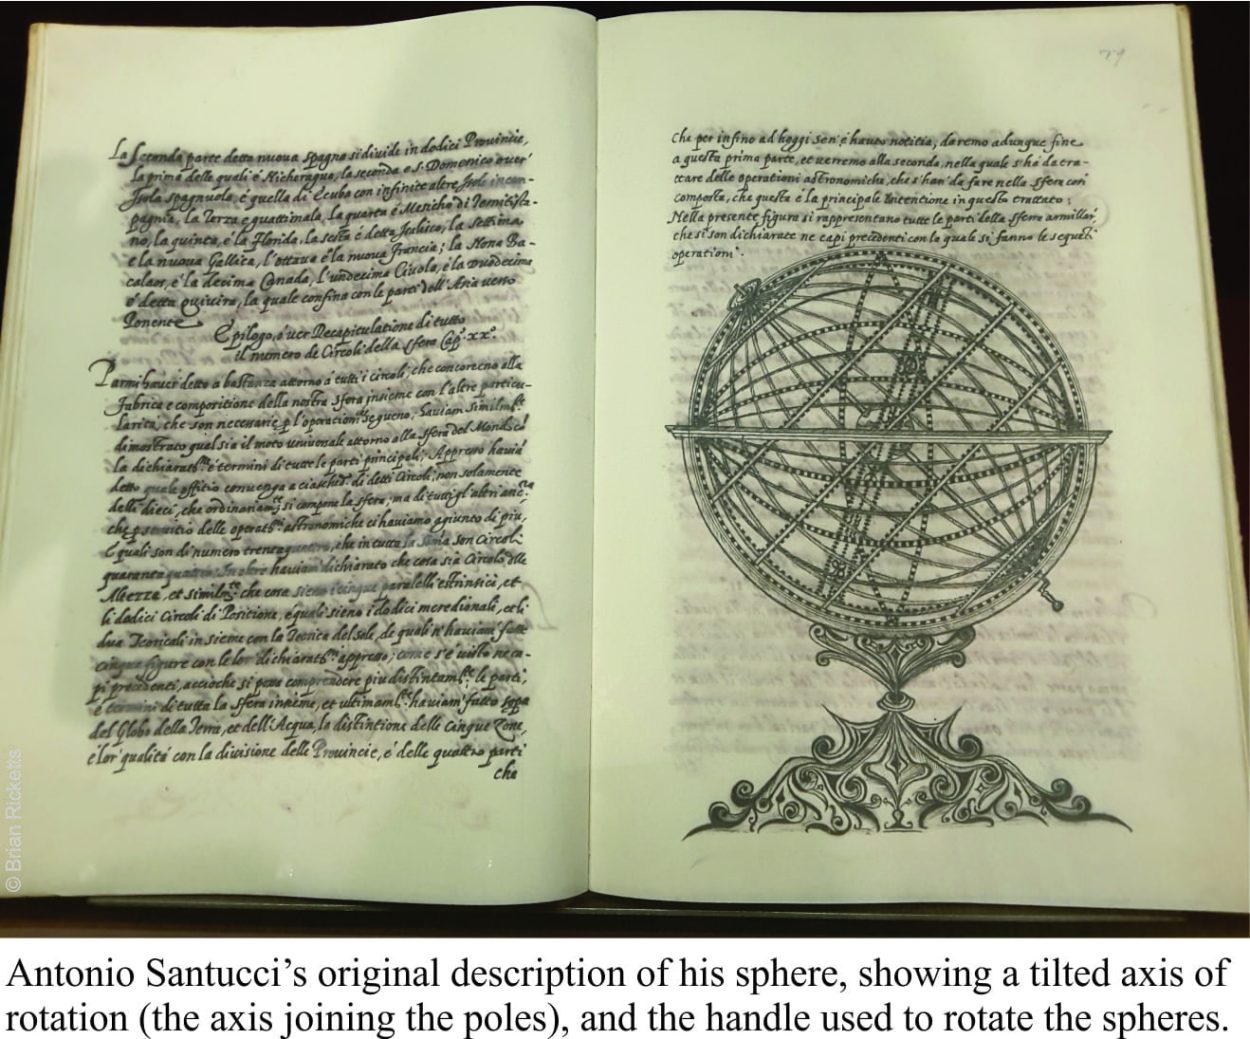 La Seconda parte detta nuova Spagna si divide in dodici Provincie,
la prima delle quali è Nicheragua, la seconda e S. Domenico over'
Isola spagnuola, è quella di Ecuba con infinite altre Isole incom-
pagnia, la Terza e quattimala, la quarta è Mexicho di Temitista-
no, la quinta, è la Florida, la sesta è detta Jeshico, la settima
e la nuova Gallica, l'ottava e la nuova francia; la Nona Ba-
calaos, e la Decima Canada, l'undecima Civola, e la Duodecima
è detta quivira, la quale confina con le parti dell'Ania verso
Ponente
Epilogo, ò ver Decapitulatione di tutto
il numero de Circoli della sfera Cap. xx°.
Parmi haver detto a bastanza attorno à tutti i circoli, che concorreno alla
fabrica e compositione della nostra sfera insieme con l'altre particu-
larità, che son necenarie p l'operationi Segueno, haviam similmte
dimostrato qual sia il moto universale attorno alla sfera del Mondo, e
la dichiarati e termini di tutte le parti principali; Appresso havia
detto quale offitio convenga a ciasched. di detti Circoli, non solamente
delli dieci, che ordinariam si compone la sfera, ma di tutti gl'altri anc
che p servitio delle operati astronomiche ci haviamo agiunto di piu,
E quali son di numero trenta quattro, che in tutta la son Circoli
quaranta quattro: haviam dichiarato che cosa sia Circolo delle
Altezza, et simil che cosa sieno i cinque paralelli estrinsici, et
li dodici Circoli di Positione, e quali sieno i dodici meredionali, et li
dua Teoricali in sieme con la Teorica del sole, de quali n'haviam fatte
cinque figure con le lor' dichiarat appresso; come s'è visto ne ca-
pi precedenti, accioche si possa comprendere piu distintam le parti,
e termini di tutta la sfera insieme, et ultimam haviam' fatto
del Globo della Terra, et dell'Acqua, la distintione delle cinque Zone,
e lor' qualità con la divisione delle Provincie, e delle quattro parti
che
79
che per infino ad hoggi sen'è hauto notitia, daremo adunque fine
a questa prima parte, et verremo alla seconda, nella quale s'hà da tra-
ttare delle operationi astronomiche, che s'han' da fare nella sfera così
composta, che questa è la principale Intentione in questo trattato;
Nella presente figura si rappresentano tutte le parti della sfera armillar'
che si son dichiarate ne capi precedenti con la quale si fanno le seguēti
operationi.
© Brian Ricketts
Antonio Santucci’s original description of his sphere, showing a tilted axis of
rotation (the axis joining the poles), and the handle used to rotate the spheres.